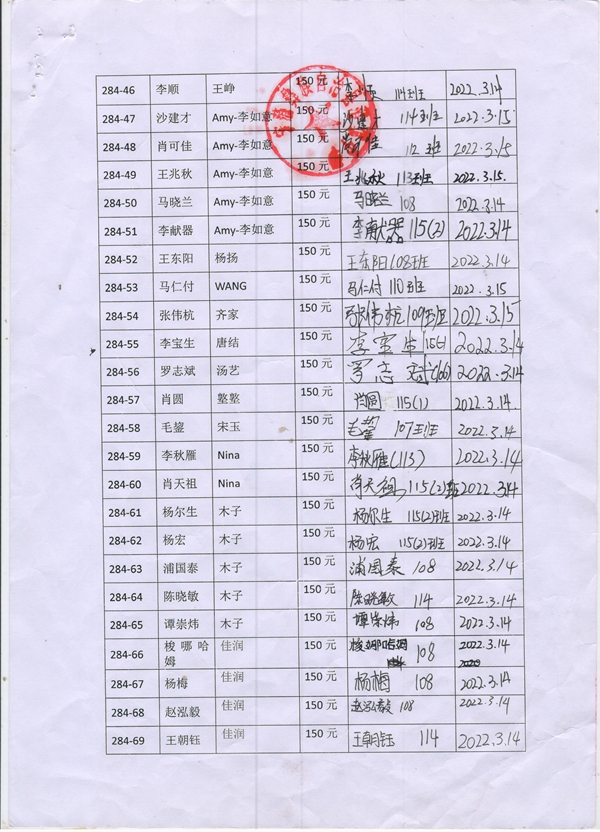 284-46 李顺 王峥 150元 李顺 114班 2022.3.14
284-47 沙建才 Amy-李如意 150元 沙建才 114班 2022.3.15
284-48 肖可佳 Amy-李如意 150元 肖可佳 112班 2022.3.15
284-49 王兆秋 Amy-李如意 150元 王兆秋 113班 2022.3.15.
284-50 马晓兰 Amy-李如意 150元 马晓兰 108 2022.3.14
284-51 李献器 Amy-李如意 150元 李献器 115(2) 2022.3.14
284-52 王东阳 杨扬 150元 王东阳 108班 2022.3.14
284-53 马仁付 WANG 150元 马仁付 110班 2022.3.15
284-54 张伟杭 齐家 150元 张伟杭 109班 2022.3.15
284-55 李宝生 唐结 150元 李宝生 2022.3.14
284-56 罗志斌 汤艺 150元 罗志斌 2022.3.14
284-57 肖圆 整整 150元 肖圆 115(1) 2022.3.14.
284-58 毛鋆 宋玉 150元 毛鋆 107班 2022.3.14
284-59 李秋雁 Nina 150元 李秋雁(113) 2022.3.14
284-60 肖天祖 Nina 150元 肖天祖 115(2)班 2022.3.14
284-61 杨尔生 木子 150元 杨尔生 115(2)班 2022.3.14
284-62 杨宏 木子 150元 杨宏 115(2)班 2022.3.14
284-63 浦国泰 木子 150元 浦国泰 108 2022.3.14
284-64 陈晓敏 木子 150元 陈晓敏 114 2022.3.14
284-65 谭崇炜 木子 150元 谭崇炜 108 2022.3.14
284-66 梭哪哈 佳润 150元 梭哪哈姆 108 2022.3.14
姆
284-67 杨栂 佳润 150元 杨栂 108 2022.3.14
284-68 赵泓毅 佳润 150元 赵泓毅 108 2022.3.14
284-69 王朝钰 佳润 150元 王朝钰 114 2022.3.14